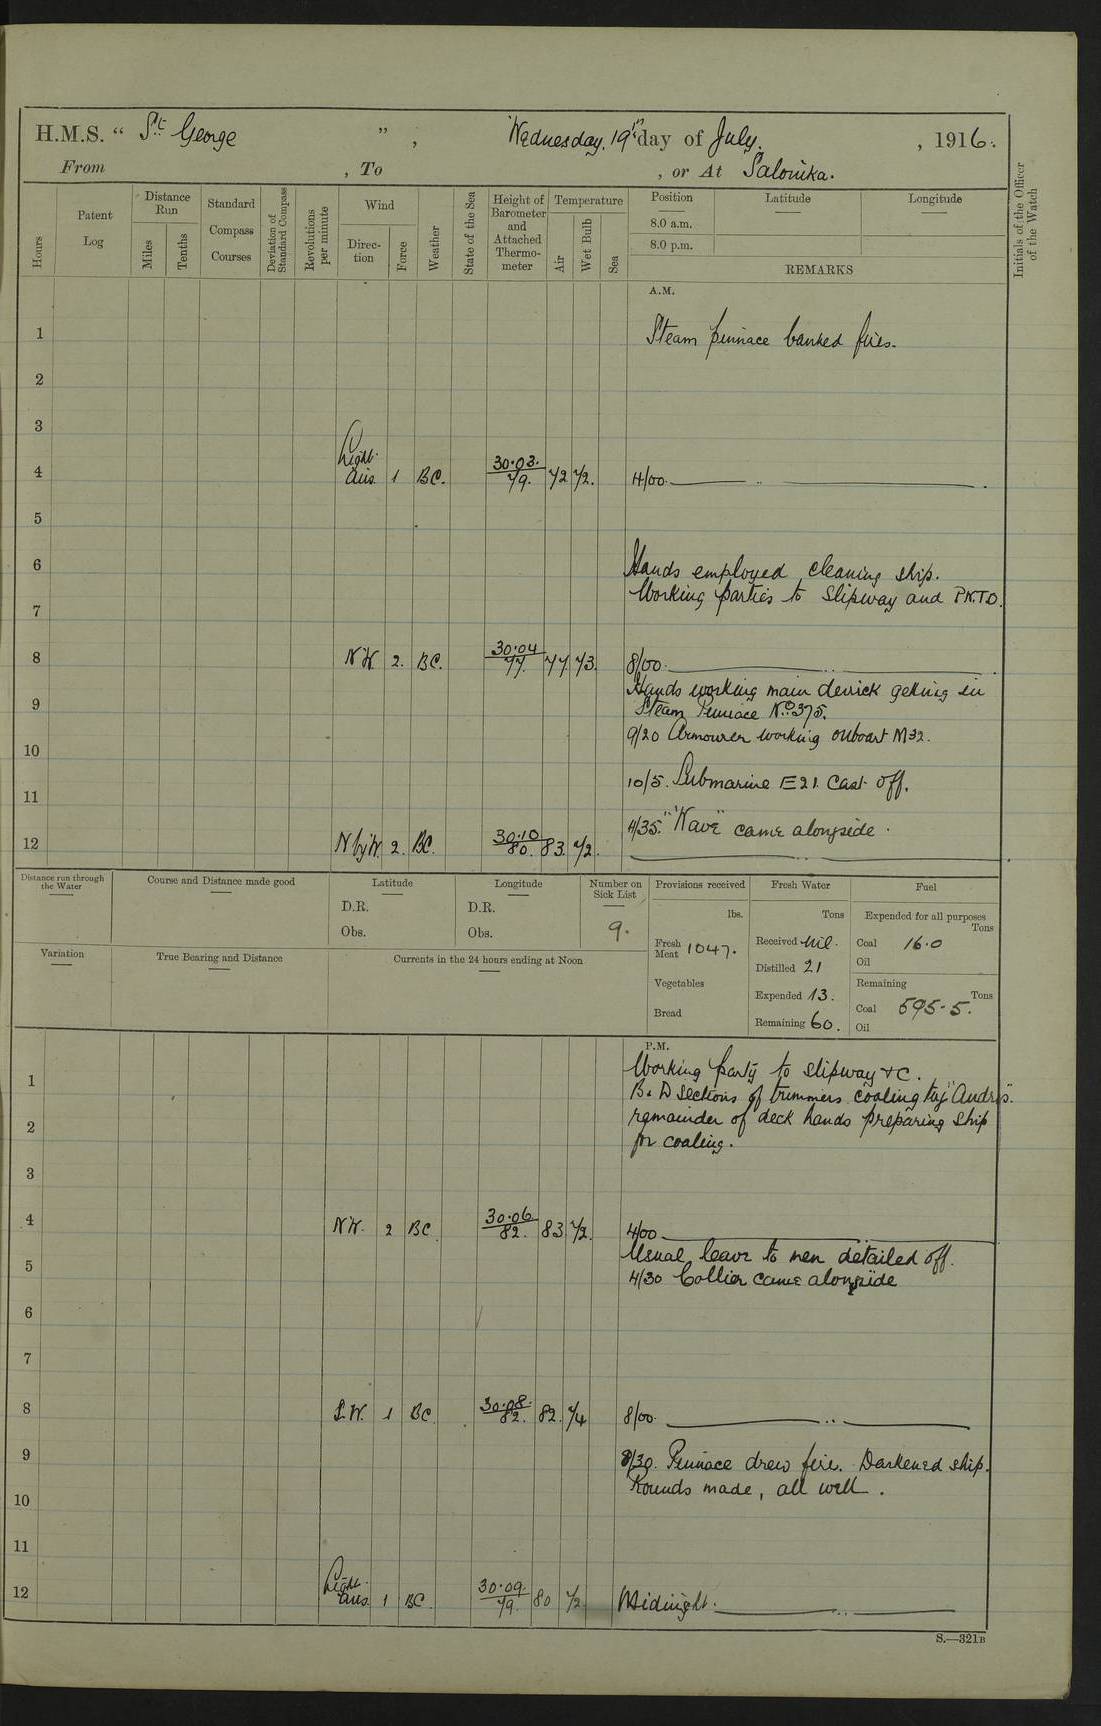 H.M.S. “ St. George ” , Wednesday, 19th day of July. , 1916.
From , To , or At Salonika.
Hours
Patent Log
Distance Run
Miles
Tenths
Standard Compass Courses
Deviation of Standard Compass
Revolutions per minute
Wind
Direc-tion
Force
Weather
State of the Sea
Height of Barometer and Attached Thermo-meter
Temperature
Air
Wet Bulb
Sea
Position
8.0 a.m.
8.0 p.m.
Latitude
Longitude
REMARKS
Initials of the Officer of the Watch
A.M.
1 Steam pinnace banked fires.
2
3
4 Light airs 1 BC. 30.03. 79. 72 72. 4/00 ..
5
6 Hands employed cleaning ship.
Working parties to Slipway and P.N.T.O.
7
8 NW. 2. BC. 30.04 77. 77. 73. 8/00. ..
Hands working main derrick getting in
9 Steam Pinnace No. 375.
9/20 Armourer working onboard M32.
10
10/5. Submarine E21 Cast off.
11
11/35. "Wave" came alongside.
12 N by W. 2. BC. 30.10 80. 83. 72. ..
Distance run through the Water
Course and Distance made good
Latitude
D.R.
Obs.
Longitude
D.R.
Obs.
Number on Sick List
9.
Provisions received
lbs.
Fresh Meat 1047.
Vegetables
Bread
Fresh Water
Tons
Received Nil.
Distilled 21
Expended 13.
Remaining 60.
Fuel
Expended for all purposes
Tons
Coal 16.0
Oil
Remaining
Tons
Coal 595.5.
Oil
Variation
True Bearing and Distance
Currents in the 24 hours ending at Noon
P.M.
Working party to slipway &c.
1 B & D sections of trimmers coaling tug "Andros".
2 remainder of deck hands preparing ship
for coaling.
3
4 NW. 2 BC 30.06 82. 83 72. 4/00 ..
Usual leave to men detailed off.
5 4/30 Collier came alongside
6
7
8 S.W. 1 BC 30.08. 82. 82. 74 8/00. ..
9 8/30. Pinnace drew fire. Darkened ship.
Rounds made, all well.
10
11
12 Light airs 1 BC. 30.09. 79. 80 72 Midnight. ..
S.—321B